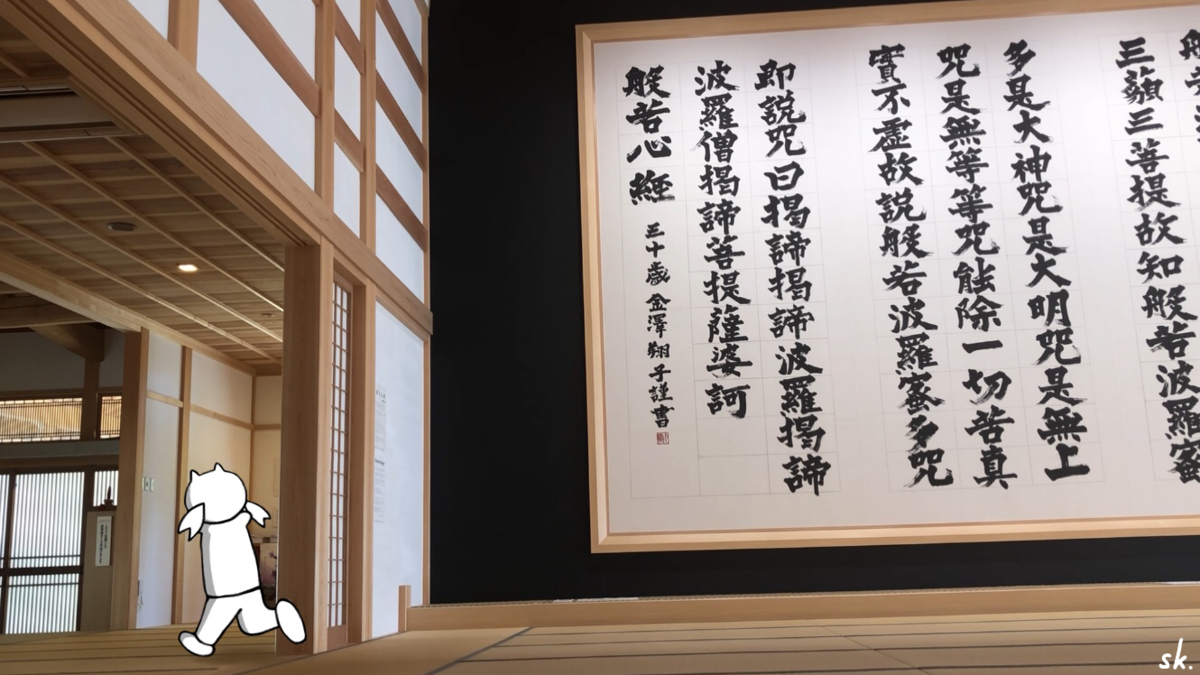 般若
三藐三菩提故知般若波羅蜜
多是大神咒是大明咒是無上
咒是無等等咒能除一切苦真
實不虚故説般若波羅蜜多咒
即説咒曰揭諦揭諦波羅揭諦
波羅僧揭諦菩提薩婆訶
般若心經 三十歳 金澤翔子謹書
sk.